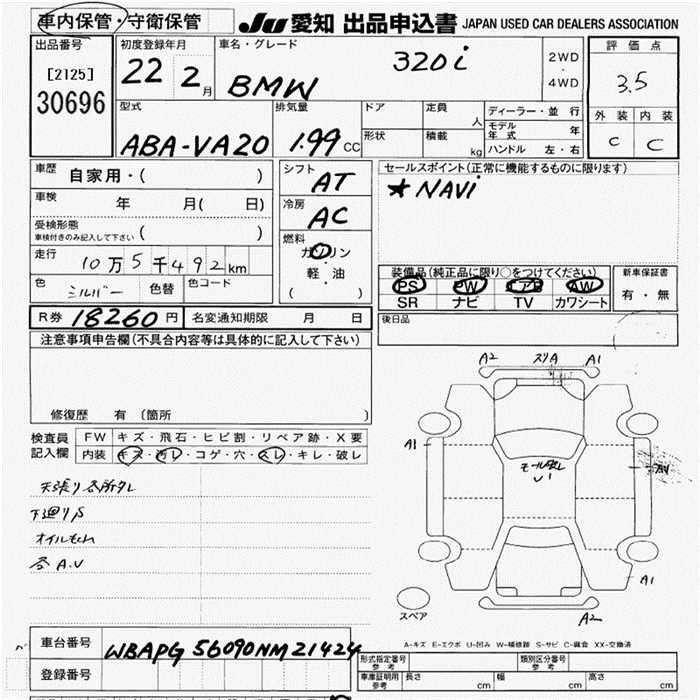 車内保管・守衛保管 JU 愛知 出品申込書 JAPAN USED CAR DEALERS ASSOCIATION
出品番号 初度登録年月 車名・グレード 評価点
[2125] 22 2月 BMW 320i 2WD・4WD 3.5
30696
型式 排気量 ドア 定員 人 ディーラー・並行 外装 内装
モデル年式 年
ABA-VA20 1.99 CC 形状 積載 kg ハンドル 左・右 C C
車歴 自家用・( ) シフト AT セールスポイント(正常に機能するものに限ります)
★NAVi
車検 年 月( 日) 冷房 AC
受検形態 ( )
車検付きのみ記入して下さい
燃料 ガソリン
軽・油
( )
走行 10万5千492km
装備品(純正品に限り○をつけてください) 新車保証書
PS PW エアB AW 有・無
SR ナビ TV カワシート
色 シルバー 色替 色コード
R券 18260円 名変通知期限 月 日 後日品
注意事項申告欄(不具合内容等は具体的に記入して下さい)
修復歴 有 (箇所 )
検査員記入欄 FW キズ・飛石・ヒビ割・リペア跡・X要
内装 キズ・汚レ・コゲ・穴・スレ・キレ・破レ
天張り各所タレ
下廻りS
オイルもれ
各A.U
A2 スリA A1
A1
U1
A1
A2
スペア
A-キズ E-エクボ U-凹み W-補修跡 S-サビ C-腐食 XX-交換済
車台番号 WBAPG56090NM21424
登録番号
形式指定番号 参考 類別区分番号 参考
車庫証明用 参考 長さ cm 幅 cm 高さ cm